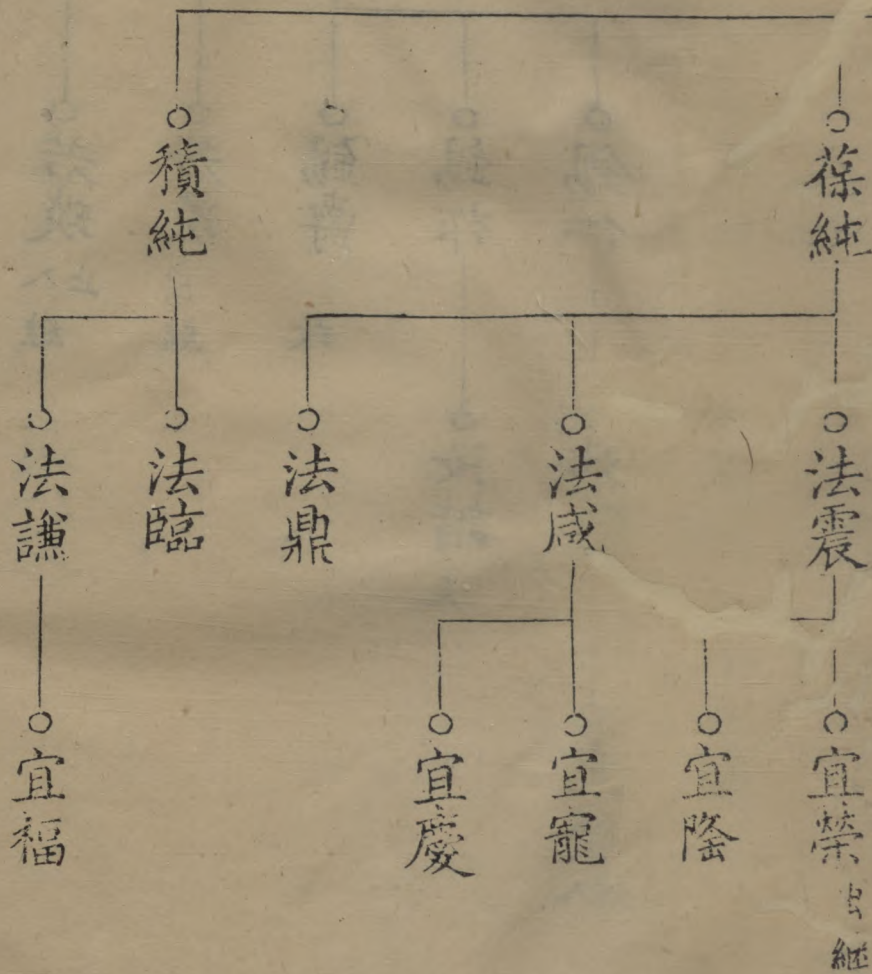 葆純
積純
法震
法咸
法鼎
法臨
法謙
宜榮 出繼
宜隆
宜寵
宜慶
宜福